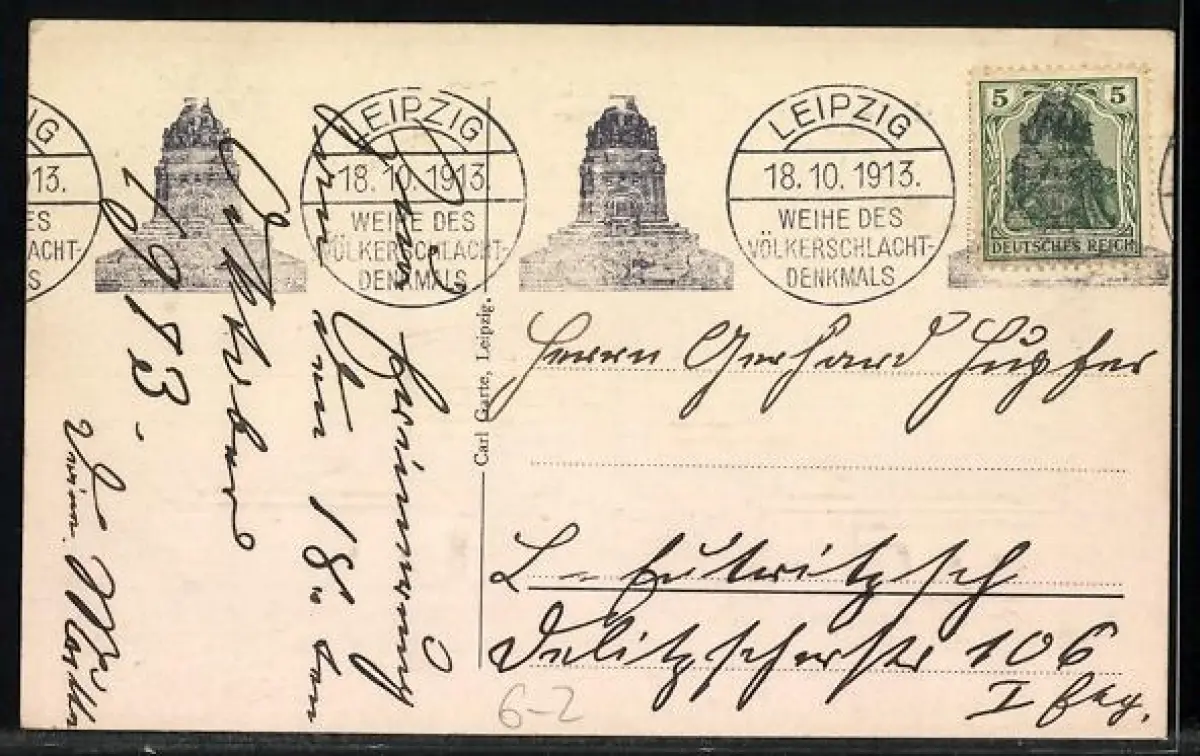 IG
13.
ES
LACHT-
S
LEIPZIG
18.10.1913.
WEIHE DES
VÖLKERSCHLACHT-
DENKMALS
LEIPZIG
18.10.1913.
WEIHE DES
VÖLKERSCHLACHT-
DENKMALS
5 5
DEUTSCHES REICH
Carl Garte, Leipzig.
Zur
Erinnerung
an den 18. den
Oktober
1913.
Herrn Gerhard Hupfer
L-Eutritzsch
Delitzscherstr 106
I Etg.
6-2